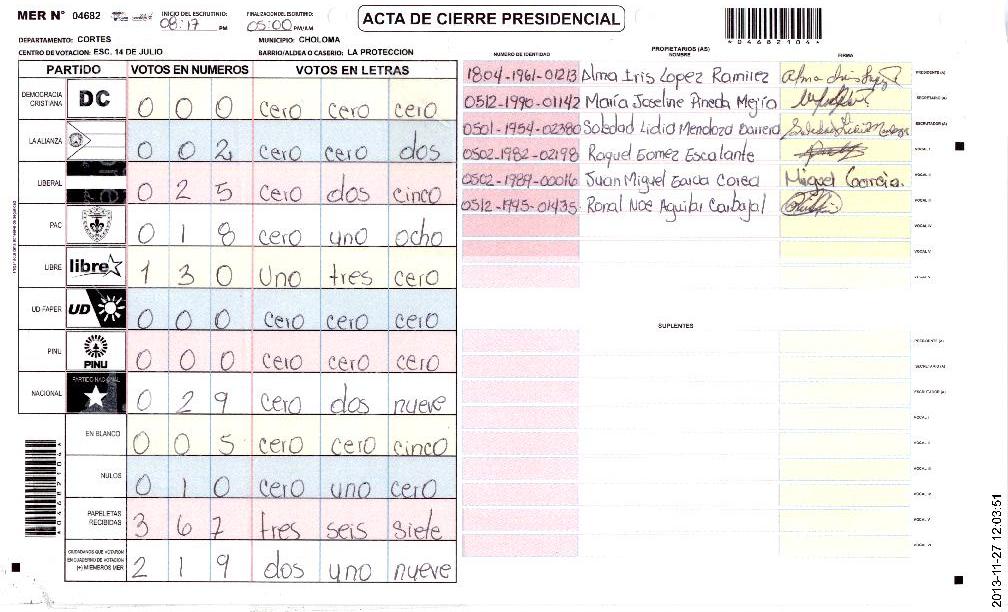 MER N° 04682
INICIO DEL ESCRUTINIO: 08:17 PM
FINALIZACON ESCRUTINIO: 05:00 PM/AM
ACTA DE CIERRE PRESIDENCIAL
*04682104*
DEPARTAMENTO: CORTES
MUNICIPIO: CHOLOMA
CENTRO DE VOTACION: ESC. 14 DE JULIO
BARRIO/ALDEA O CASERIO: LA PROTECCION
PARTIDO VOTOS EN NUMEROS VOTOS EN LETRAS
DEMOCRACIA CRISTIANA DC 0 0 0 cero cero cero
LA ALIANZA 0 0 2 cero cero dos
LIBERAL 0 2 5 cero dos cinco
PAC 0 1 8 cero uno ocho
LIBRE libre 1 3 0 uno tres cero
UD FAPER UD 0 0 0 cero cero cero
PINU PINU 0 0 0 cero cero cero
NACIONAL PARTIDO NACIONAL 0 2 9 cero dos nueve
EN BLANCO 0 0 5 cero cero cinco
NULOS 0 1 0 cero uno cero
PAPELETAS RECIBIDAS 3 6 7 tres seis siete
CIUDADANOS QUE VOTARON EN CUADERNO DE VOTACION (+) MIEMBROS MER 2 1 9 dos uno nueve
*04682104*
PROPIETARIOS (AS)
NUMERO DE IDENTIDAD NOMBRE FIRMA
1804-1961-01213 Alma Iris Lopez Ramirez PRESIDENTE (A)
0512-1990-01142 María Joseline Pineda Mejía SECRETARIO (A)
0501-1954-02380 Soledad Lidia Mendoza Barrera ESCRUTADOR (A)
0502-1982-02198 Raquel Gomez Escalante VOCAL I
0502-1989-00016 Juan Miguel Garcia Corea Miguel Garcia. VOCAL II
0512-1995-01435 Ronal Noe Aguilar Carbajal VOCAL III
VOCAL IV
VOCAL V
VOCAL VI
SUPLENTES
PRESIDENTE (A)
SECRETARIO (A)
ESCRUTADOR (A)
VOCAL I
VOCAL II
VOCAL III
VOCAL IV
VOCAL V
VOCAL VI
2013-11-27 12:03:51